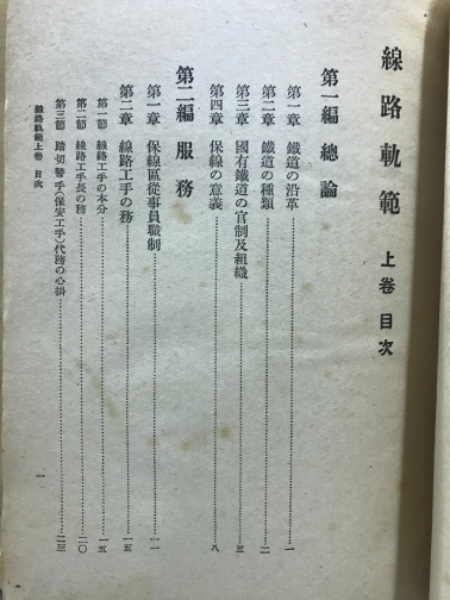 線路軌範 上卷目次
第一編 總論
第一章 鐵道の沿革……一
第二章 鐵道の種類……二
第三章 國有鐵道の官制及組織……三
第四章 保線の意義……八
第二編 服務
第一章 保線區從事員職制……一一
第二章 線路工手の務……一五
第一節 線路工手の本分……一五
第二節 線路工手長の務……二〇
第三節 踏切警手(保安工手)代務の心掛……二三
線路軌範上卷 目次 一